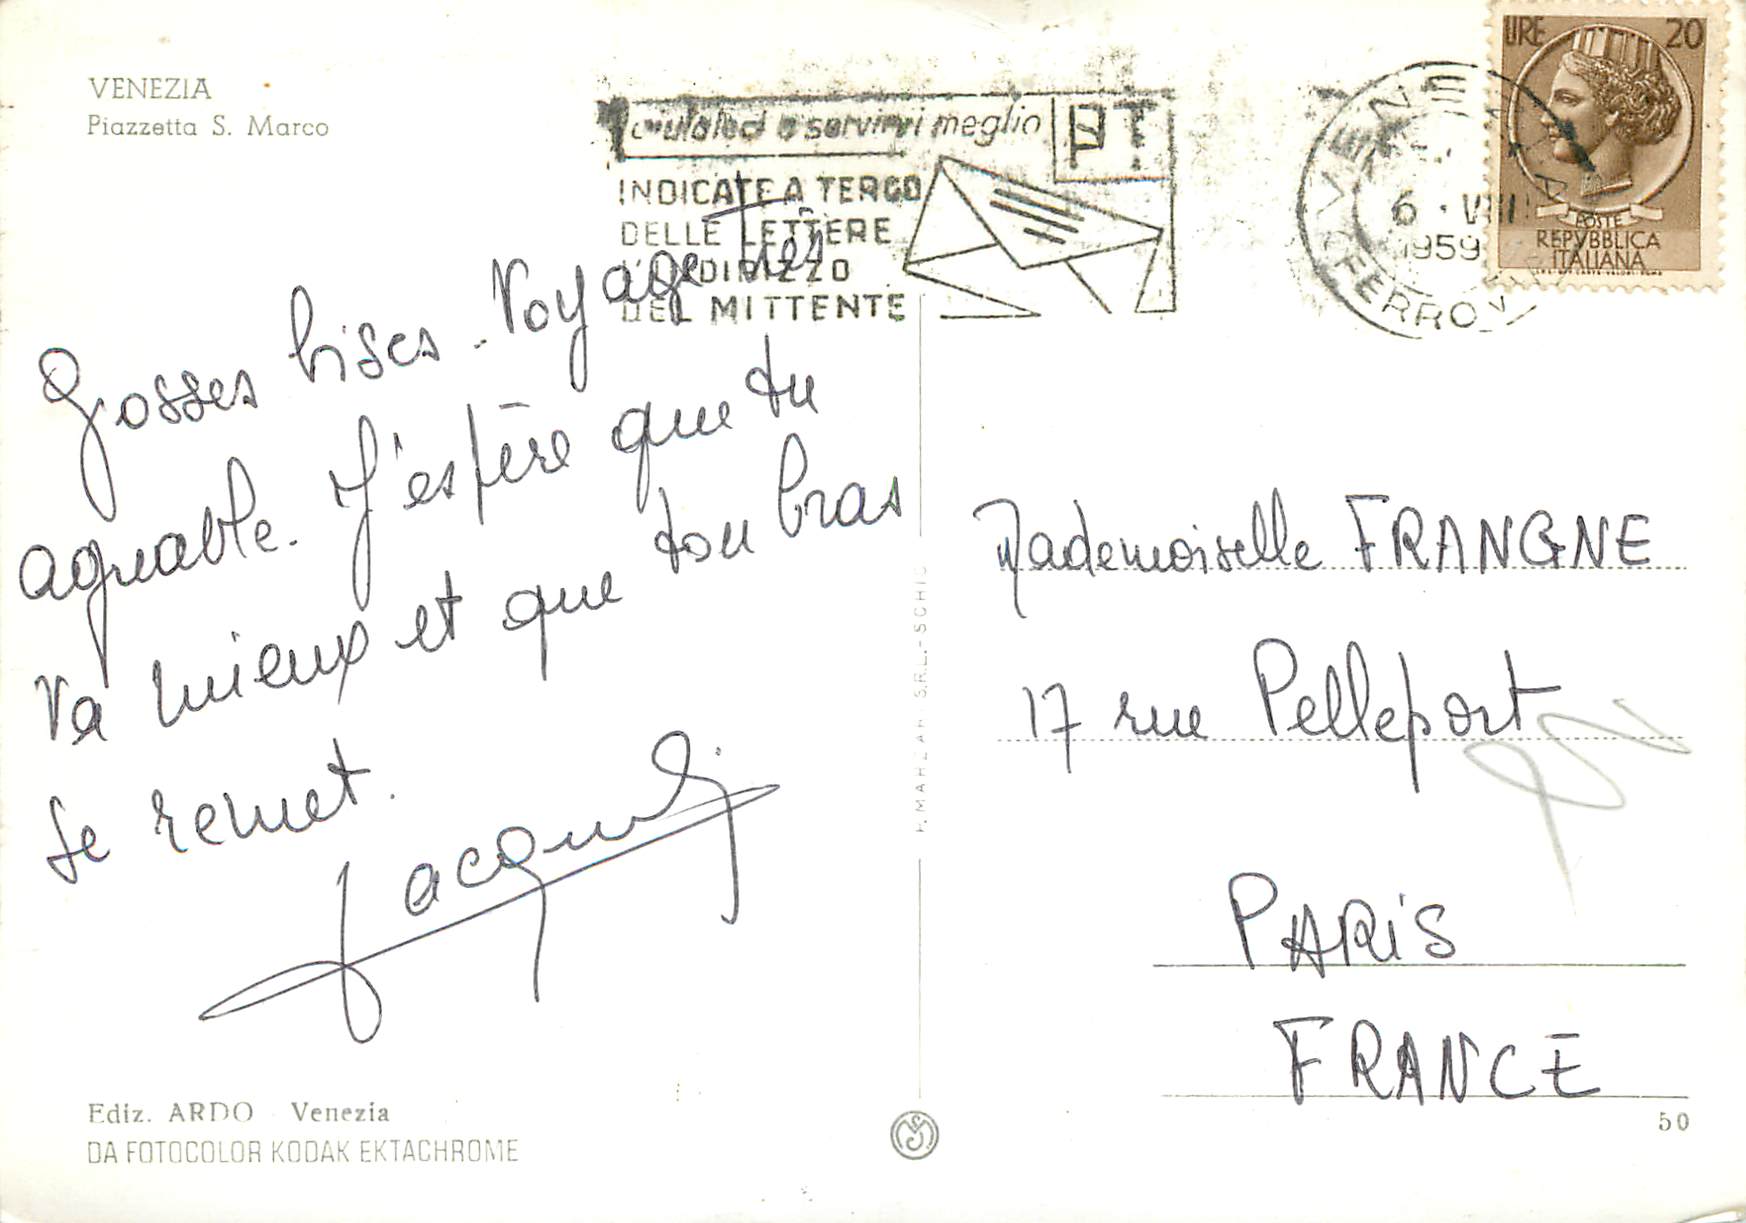 VENEZIA
Piazzetta S. Marco
aiutateci a servirvi meglio
PT
INDICATE A TERGO
DELLE LETTERE
L'INDIRIZZO
DEL MITTENTE
VENEZIA
6 · VIII
1959
FERROVIA
LIRE 20
POSTE
REPVBBLICA
ITALIANA
Grosses bises. Voyage Très
agréable. J'espère que tu
va mieux et que ton bras
se remet.
Mademoiselle FRANGNE
17 rue Pelleport
PARiS
FRANCE
Ediz. ARDO Venezia
DA FOTOCOLOR KODAK EKTACHROME
50